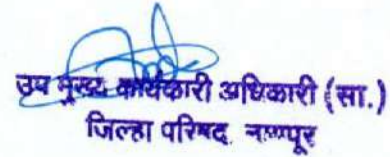 उप मुख्य कार्यकारी अधिकारी (सा.)
जिल्हा परिषद नागपूर